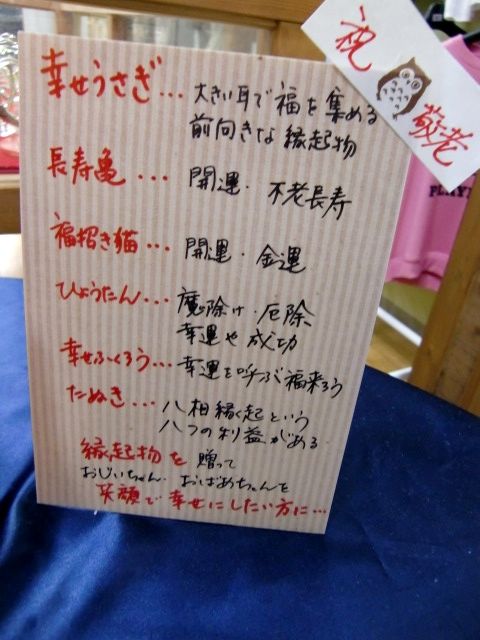 祝
敬老
幸せうさぎ… 大きい耳で福を集める
前向きな縁起物
長寿亀… 開運・不老長寿
福招き猫… 開運・金運
ひょうたん… 魔除け・厄除
幸運や成功
幸せふくろう… 幸運を呼ぶ福来ろう
たぬき… 八相縁起という
八つの利益がある
縁起物を贈って
おじいちゃん、おばあちゃんを
笑顔で幸せにしたい方に…